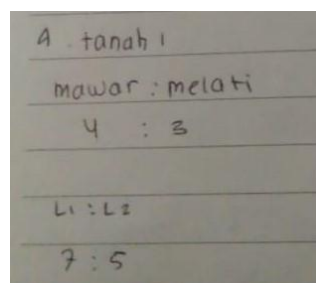 A. tanah 1
mawar : melati
4 : 3
L1 : L2
7 : 5